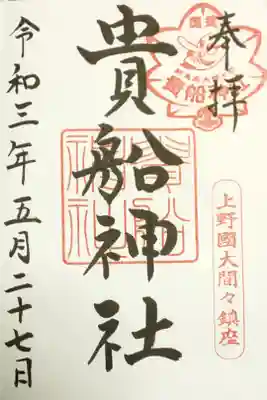 奉拝
貴船神社
上野國大間々鎮座
令和三年五月二十七日
貴船神社